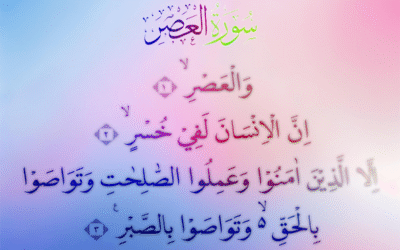 سُورَةُ الْعَصْرِ
وَالْعَصْرِ ۙ ﴿۱﴾
اِنَّ الْاِنْسَانَ لَفِیْ خُسْرٍ ۙ ﴿۲﴾
اِلَّا الَّذِیْنَ اٰمَنُوْا وَعَمِلُوا الصّٰلِحٰتِ وَتَوَاصَوْا
بِالْحَقِّ ۙ۬ وَتَوَاصَوْا بِالصَّبْرِ ۧ ﴿۳﴾